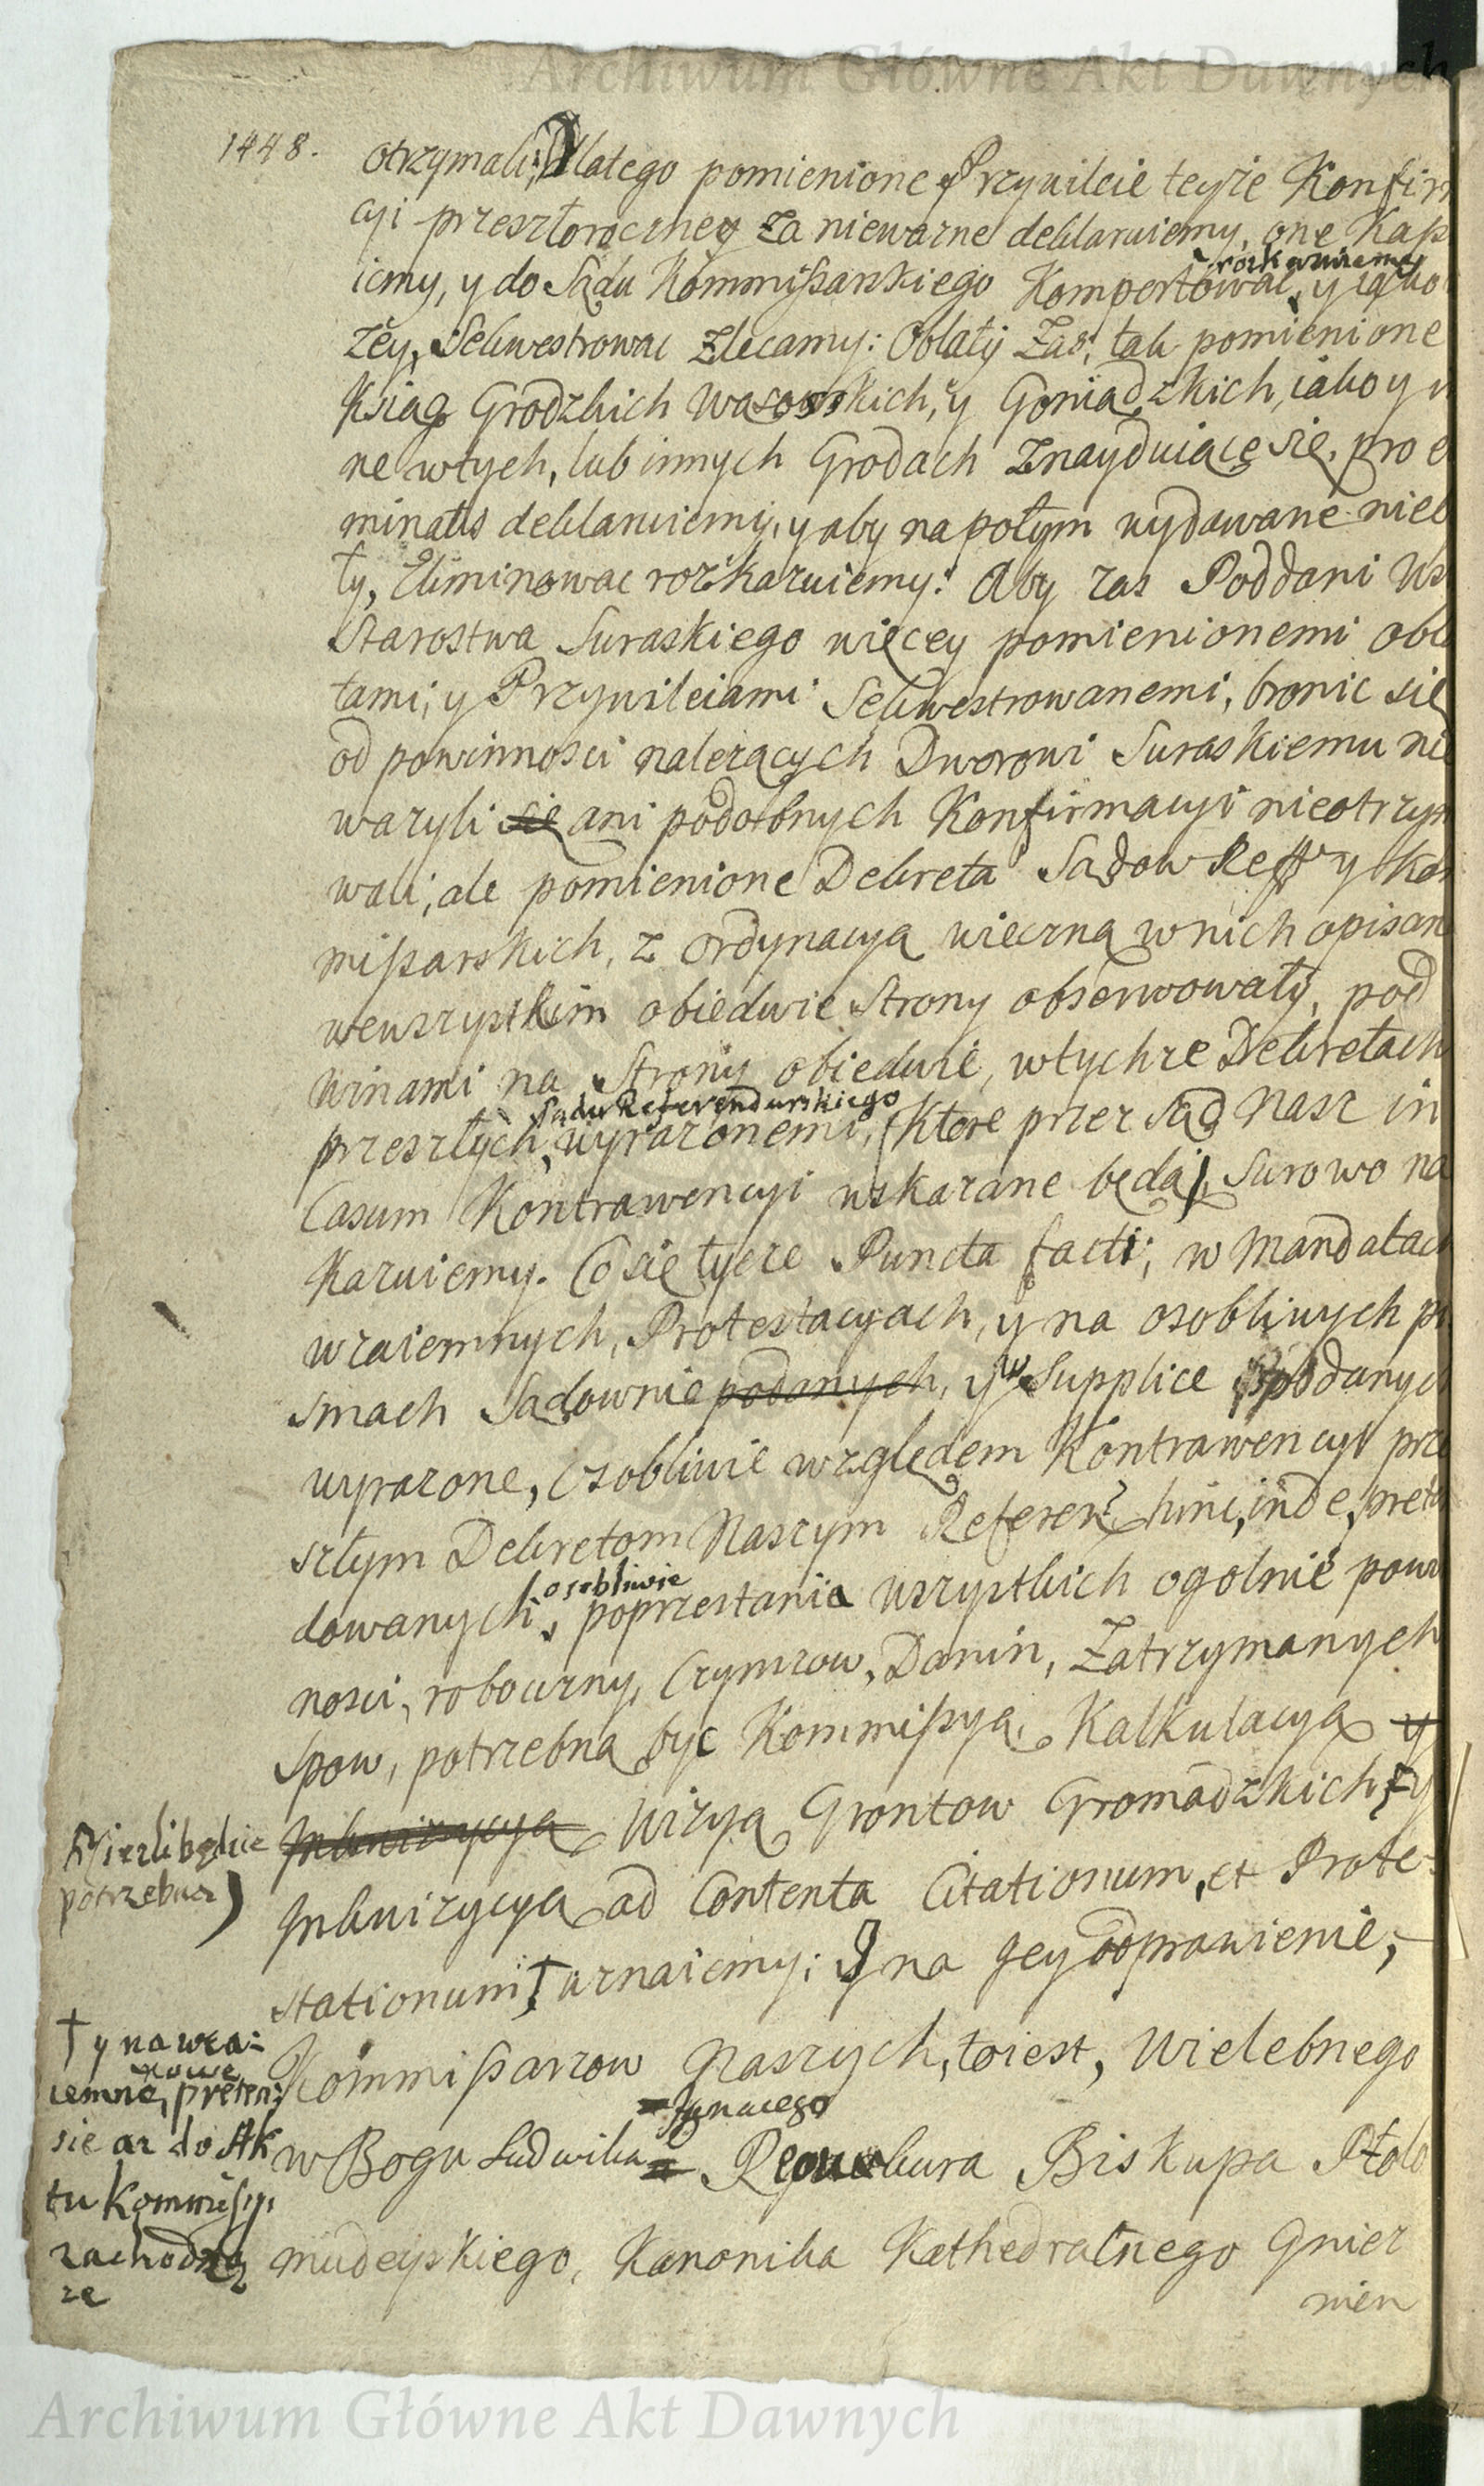 Archiwum Główne Akt Dawnych
1448.
otrzymali; Dlatego pomienione Przywileie teyże Konfirm
cyi przeszłoroczney za nieważne deklaruiemy, one Kaß
rozkazuiemy
iemy, y do Sądu Kommißarskiego Komportować, y iako
zey, Sekwestrowac zlecamy: Oblaty zaś, tak pomienione
Ksiąg Grodzkich Wąsowskich, y Goniądzkich, iako y
ne wtych, lub innych Grodach znayduiące się, pro e
minatis deklaruiemy, y aby napotym wydawane nieb
ty, Eliminowac rozkazuiemy: Aby zas Poddani Ws
Starostwa Suraskiego więcey pomienionemi obl
tami, y Przywileiami Sekwestrowanemi, bronic się
od powinnosci należących Dworowi Suraskiemu nie
wazyli się ani podobnych Konfirmacyi nieotrzym
wali; ale pomienione Dekreta Sądow Reffr y Kom
mißarskich, z ordynacyą wieczną wnich opisan
wewszystkim obiedwie Strony obserwowały, pod
winami na Strony obiedwie, wtychze Dekretach
Sądu Referendarskiego
przeszłych, wyrażonemi, (ktore przez Sąd Nasz in
Casum Kontrawencyi wskazane będą) Surowo na
Kazuiemy. Co się tycze Puncta facti; w Mandatach
wzaiemnych, Protestacyach, y na osobliwych pi
smach Sądownie podanych, y w Supplice podanych
wyrażone, Osobliwie względem Kontrawencyi prze
szłym Dekretom Naszym Referen: hinc, inde, preten
osobliwie
dowanych, poprzestania wszystkich ogolnie powi
nosci, robocizny, Czynszow, Danin, Zatrzymanych
spow, potrzebna być Kommißya, Kalkulacya y
Inkwizycya Wizya Gruntow Gromadzkich, y
Inkwizycya ad Contenta Citationum, et Prote-
stationum, † uznaiemy; Y na Jey odprawienie,
Kommißarzow Naszych, toiest, Wielebnego
Ignacego
w Bogu Ludwika Riaucoura Biskupa Ptolo
maideyskiego, Kanonika Kathedralnego Gniez
nien
y ieżli będzie
potrzebna)
† y na wza-
iemne, preten:
sie aż do Ak
tu Kommißyi
zachodzą
ze
Archiwum Główne Akt Dawnych